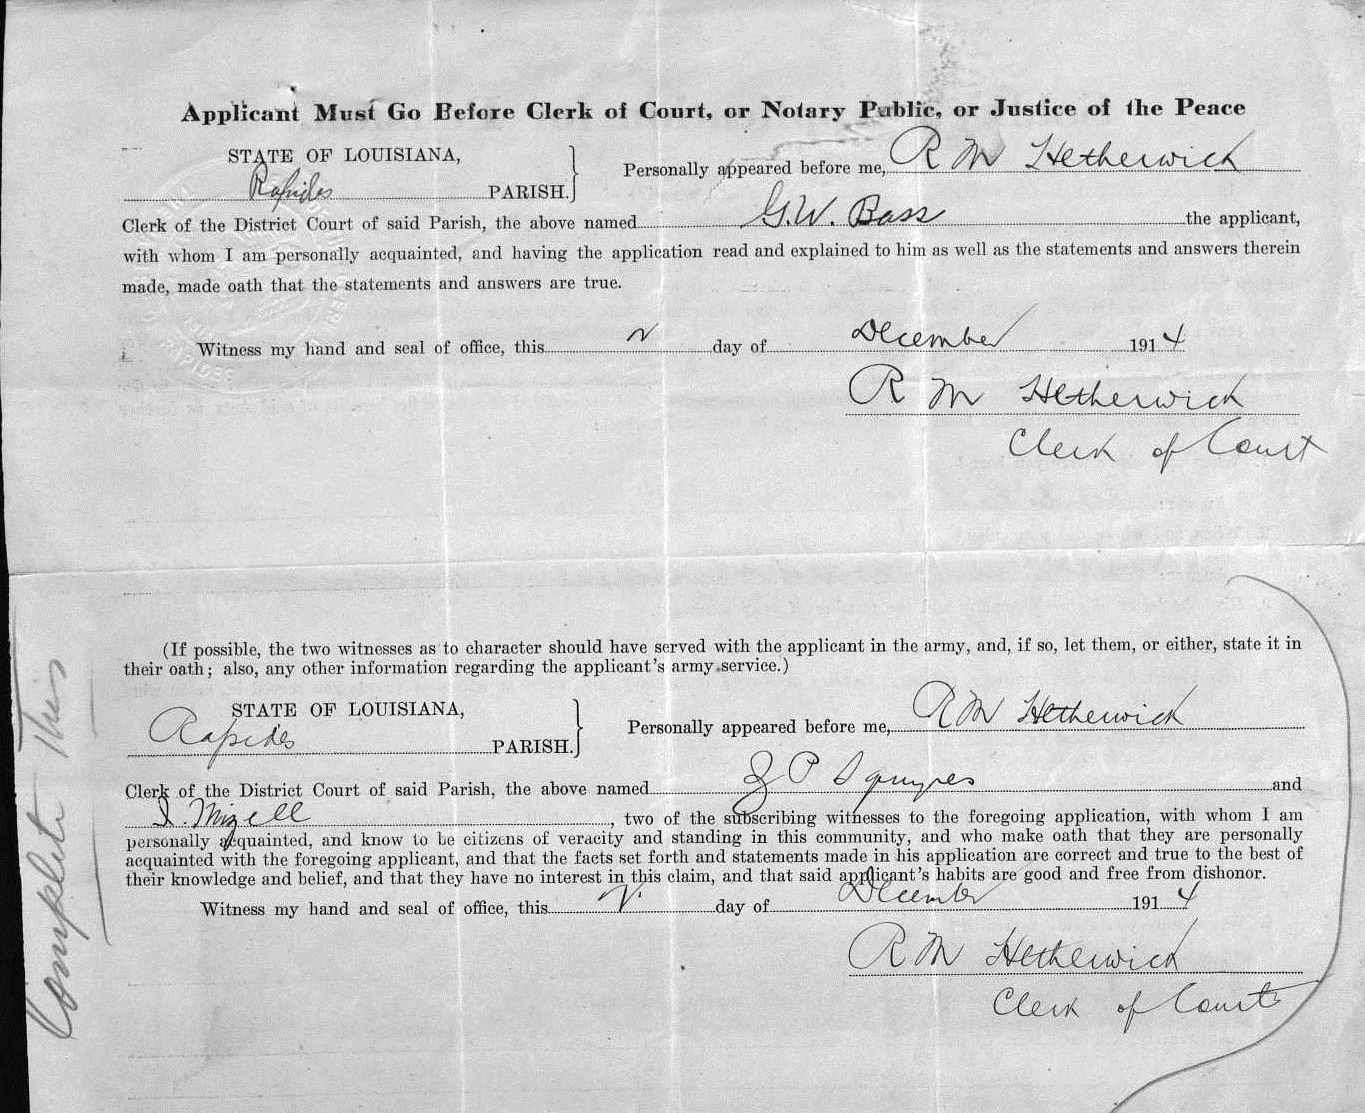 Applicant Must Go Before Clerk of Court, or Notary Public, or Justice of the Peace
STATE OF LOUISIANA,
Rapides PARISH.
Personally appeared before me, R M Hetherwick
Clerk of the District Court of said Parish, the above named G.W. Bass the applicant,
with whom I am personally acquainted, and having the application read and explained to him as well as the statements and answers therein
made, made oath that the statements and answers are true.
Witness my hand and seal of office, this day of December 1914
R M Hetherwick
Clerk of Court
(If possible, the two witnesses as to character should have served with the applicant in the army, and, if so, let them, or either, state it in
their oath; also, any other information regarding the applicant's army service.)
STATE OF LOUISIANA,
Rapides PARISH.
Personally appeared before me, R M Hetherwick
Clerk of the District Court of said Parish, the above named P Squyres and
Mizell, two of the subscribing witnesses to the foregoing application, with whom I am
personally acquainted, and know to be citizens of veracity and standing in this community, and who make oath that they are personally
acquainted with the foregoing applicant, and that the facts set forth and statements made in his application are correct and true to the best of
their knowledge and belief, and that they have no interest in this claim, and that said applicant's habits are good and free from dishonor.
Witness my hand and seal of office, this day of December 1914
R M Hetherwick
Clerk of Court
Complete this